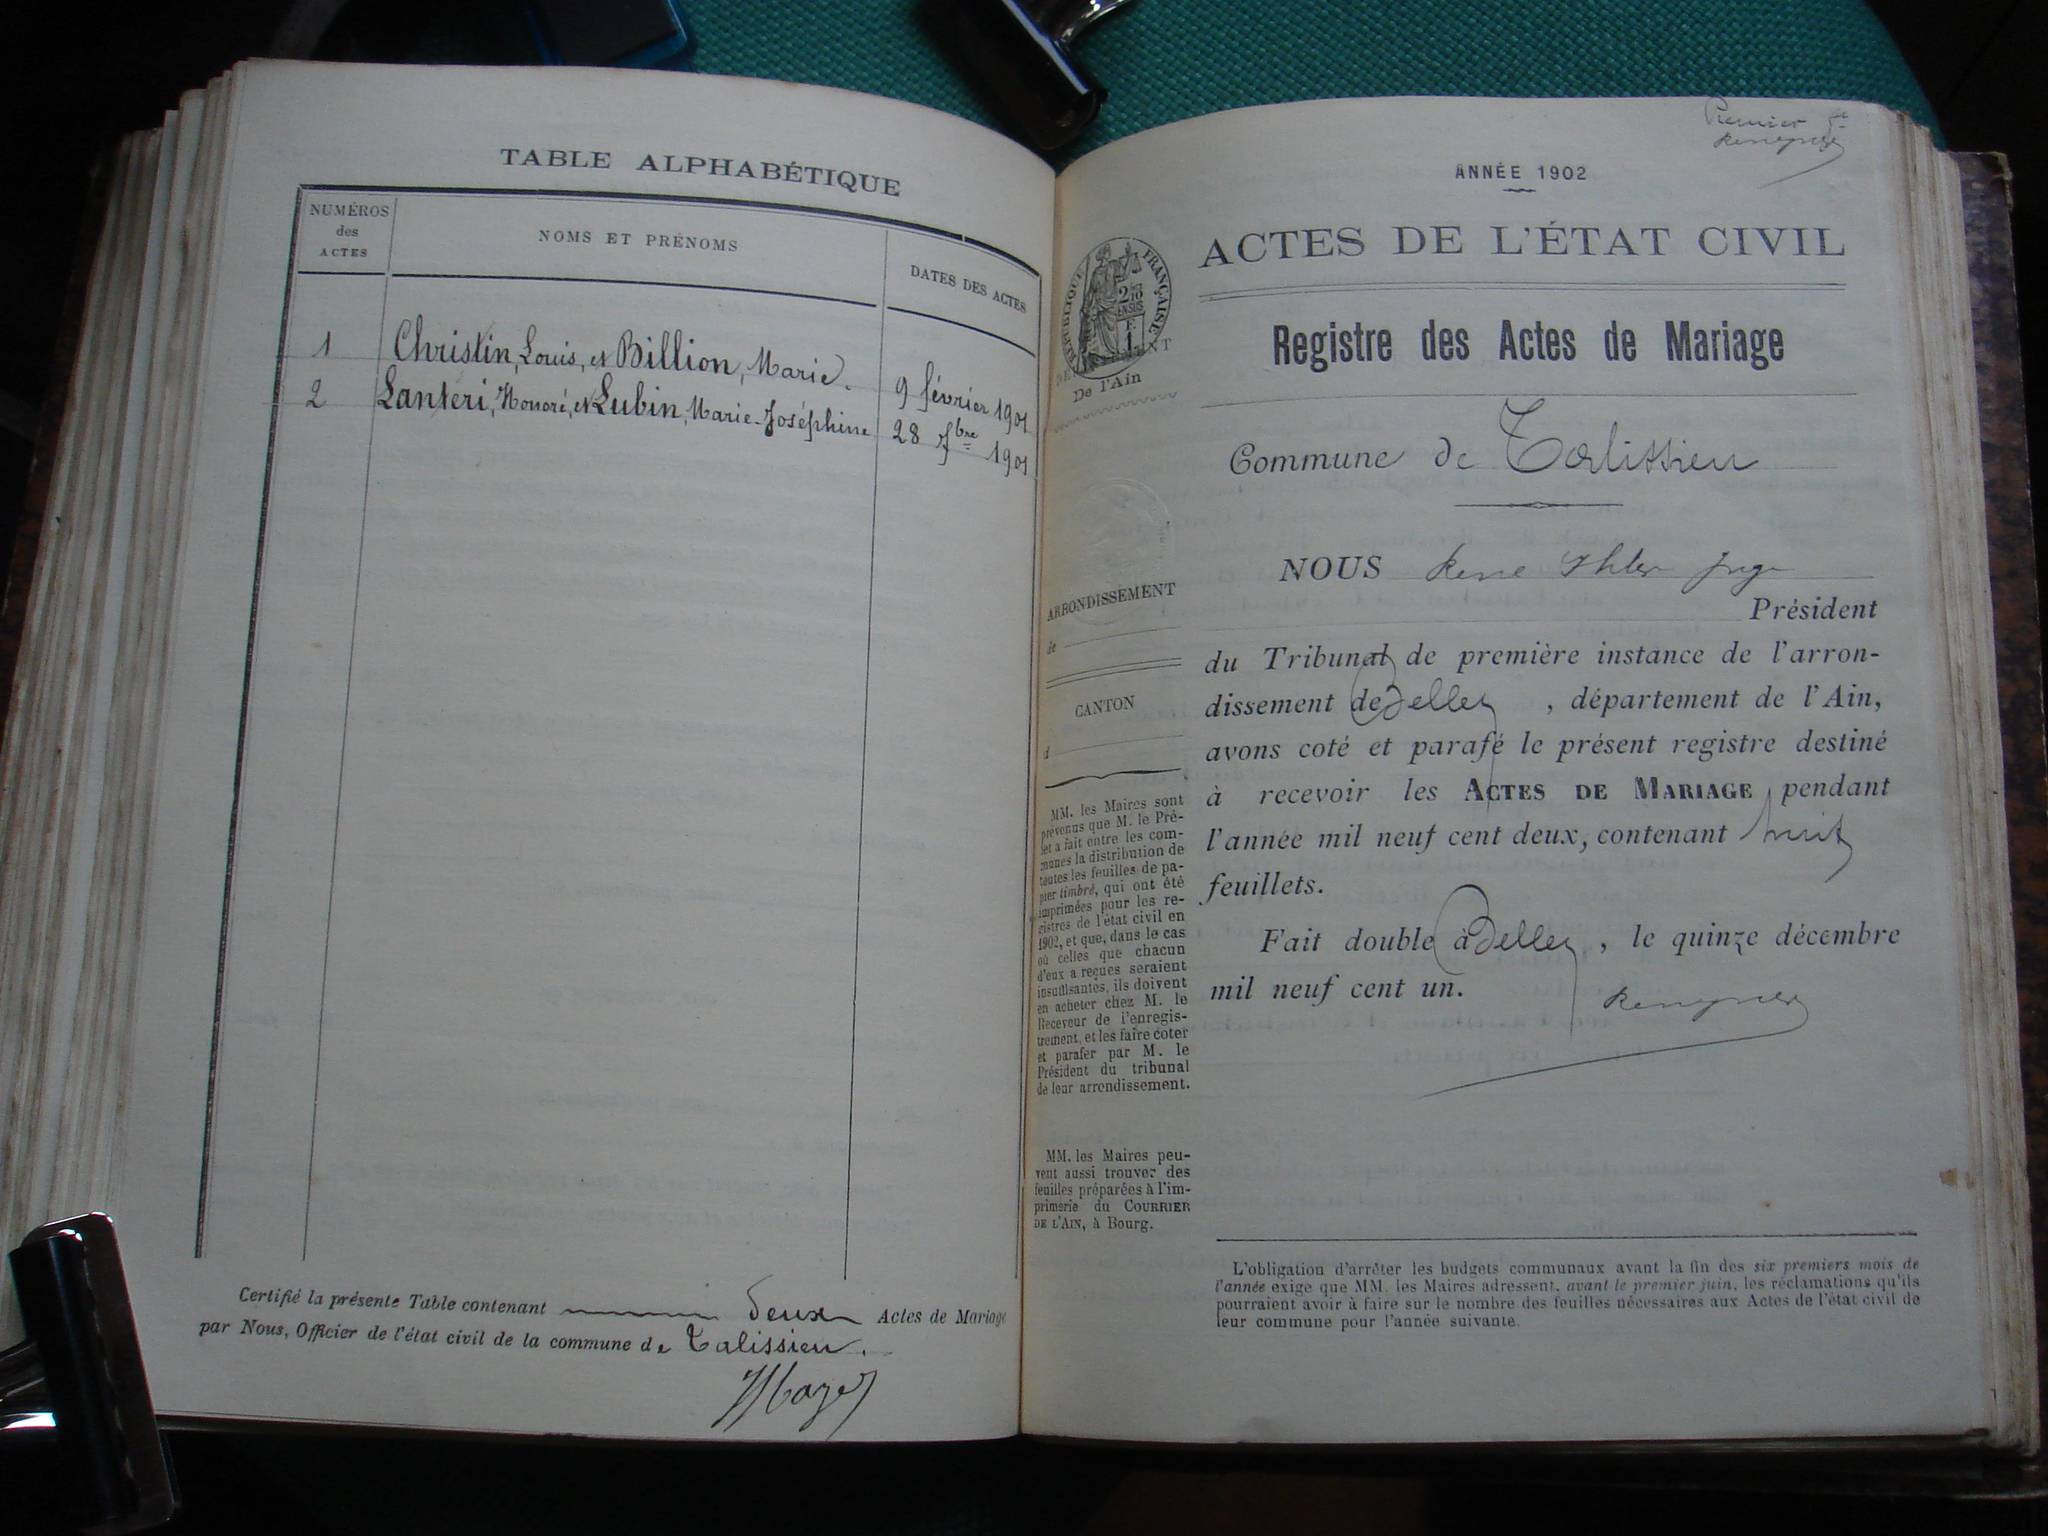 TABLE ALPHABÉTIQUE
NUMÉROS
des
ACTES
NOMS ET PRÉNOMS
DATES DES ACTES
1 Christin, Louis, et Billion, Marie. 9 février 1901
2 Lanteri, Honoré, et Lubin, Marie-Joséphine 28 1901
Certifié la présente Table contenant deux Actes de Mariage
par Nous, Officier de l'état civil de la commune de Talissieu.
Premier
ANNÉE 1902
ACTES DE L'ÉTAT CIVIL
RÉPUBLIQUE FRANÇAISE
De l'Ain
Registre des Actes de Mariage
Commune de Talissieu
ARRONDISSEMENT
de
CANTON
d
MM. les Maires sont
prévenus que M. le Pré-
fet a fait entre les com-
munes la distribution de
toutes les feuilles de pa-
pier timbré, qui ont été
imprimées pour les re-
gistres de l'état civil en
1902, et que, dans le cas
où celles que chacun
d'eux a reçues seraient
insuffisantes, ils doivent
en acheter chez M. le
Receveur de l'enregis-
trement, et les faire coter
et parafer par M. le
Président du tribunal
de leur arrondissement.
MM. les Maires peu-
vent aussi trouver des
feuilles préparées à l'im-
primerie du COURRIER
DE L'AIN, à Bourg.
NOUS René
Président
du Tribunal de première instance de l'arron-
dissement de Belley, département de l'Ain,
avons coté et parafé le présent registre destiné
à recevoir les ACTES DE MARIAGE pendant
l'année mil neuf cent deux, contenant huit
feuillets.
Fait double à Belley, le quinze décembre
mil neuf cent un.
L'obligation d'arrêter les budgets communaux avant la fin des six premiers mois de
l'année exige que MM. les Maires adressent, avant le premier juin, les réclamations qu'ils
pourraient avoir à faire sur le nombre des feuilles nécessaires aux Actes de l'état civil de
leur commune pour l'année suivante.